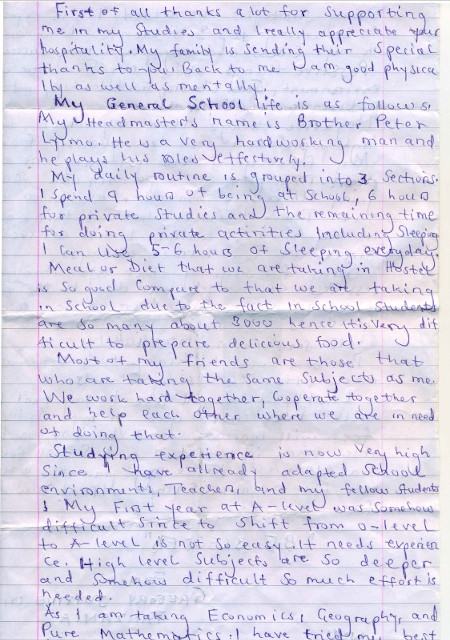 First of all thanks a lot for supporting
me in my studies and I really appreciate your
hospitality. My family is sending their special
thanks to you. Back to me I am good physica
lly as well as mentally.
My General School life is as follows:
My Headmaster's name is Brother Peter
Lyimo. He is a very hardworking man and
he plays his roles effectively.
My daily routine is grouped into 3 sections.
I spend 9 hours of being at School, 6 hours
for private studies and the remaining time
for doing private activities Including Sleeping
I can use 5-6 hours of Sleeping everyday.
Meal or Diet that we are taking in Hostel
is so good Compare to that we are taking
in School due to the fact in School Students
are so many about 3000 hence It is very dif
ficult to prepare delicious food.
Most of my friends are those that
who are taking the same subjects as me.
We work hard together, Cooperate together
and help each other where we are in need
of doing that.
Studying experience is now very high
Since I have allready adapted School
environments, Teachers, and my fellow students
My First year at A-level was Somehow
difficult since to Shift from O-level
to A-level is not so easy. It needs experien
ce. High level subjects are so deeper
and somehow difficult so much effort is
needed.
As I am taking Economics, Geography, and
Pure Mathematics. I have tried my best